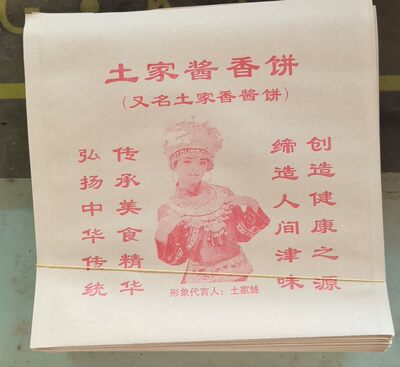 土家酱香饼
(又名土家香酱饼)
创造健康之源
缔造人间津味
传承美食精华
弘扬中华传统
形象代言人：土家妹